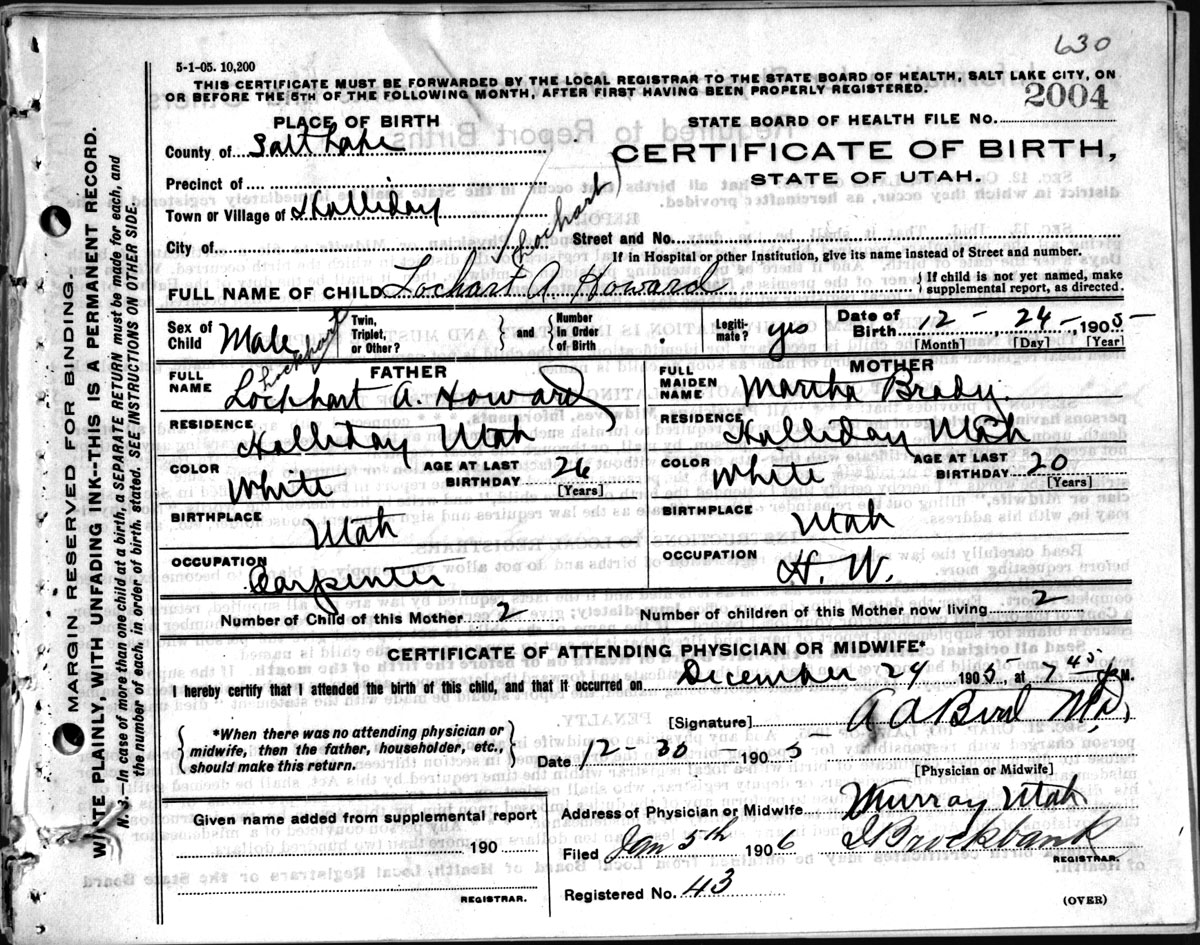 630
5-1-05. 10,200
THIS CERTIFICATE MUST BE FORWARDED BY THE LOCAL REGISTRAR TO THE STATE BOARD OF HEALTH, SALT LAKE CITY, ON
OR BEFORE THE 5TH OF THE FOLLOWING MONTH, AFTER FIRST HAVING BEEN PROPERLY REGISTERED.
2004
PLACE OF BIRTH
STATE BOARD OF HEALTH FILE NO.
County of Salt Lake
CERTIFICATE OF BIRTH,
STATE OF UTAH.
Precinct of
Town or Village of Halliday
City of
Street and No.
If in Hospital or other Institution, give its name instead of Street and number.
Lochart
FULL NAME OF CHILD Lochart A. Howard
{If child is not yet named, make
supplemental report, as directed.
Sex of Child Male
Twin, Triplet, or Other? } and { Number in Order of Birth
Legitimate? yes
Date of Birth 12 - , 24 - , 1905
[Month] [Day] [Year]
FATHER
FULL NAME Lockhart A. Howard
RESIDENCE Halliday Utah
COLOR White AGE AT LAST BIRTHDAY 26 [Years]
BIRTHPLACE Utah
OCCUPATION Carpinter
MOTHER
FULL MAIDEN NAME Martha Brady.
RESIDENCE Halliday Utah
COLOR White AGE AT LAST BIRTHDAY 20 [Years]
BIRTHPLACE Utah
OCCUPATION H. W.
Number of Child of this Mother 2 Number of children of this Mother now living 2
CERTIFICATE OF ATTENDING PHYSICIAN OR MIDWIFE*
I hereby certify that I attended the birth of this child, and that it occurred on December 24 1905, at 7 45 M.
[Signature] A A Bird MD,
{*When there was no attending physician or
midwife, then the father, householder, etc.,
should make this return.}
Date 12-30- 1905
[Physician or Midwife]
Given name added from supplemental report
190
REGISTRAR.
Address of Physician or Midwife Murray Utah
Filed Jan 5th 1906 Brockbank
REGISTRAR.
Registered No. 43
(OVER)
MARGIN RESERVED FOR BINDING.
WRITE PLAINLY, WITH UNFADING INK--THIS IS A PERMANENT RECORD.
N. B.—In case of more than one child at a birth, a SEPARATE RETURN must be made for each, and
the number of each, in order of birth, stated. SEE INSTRUCTIONS ON OTHER SIDE.